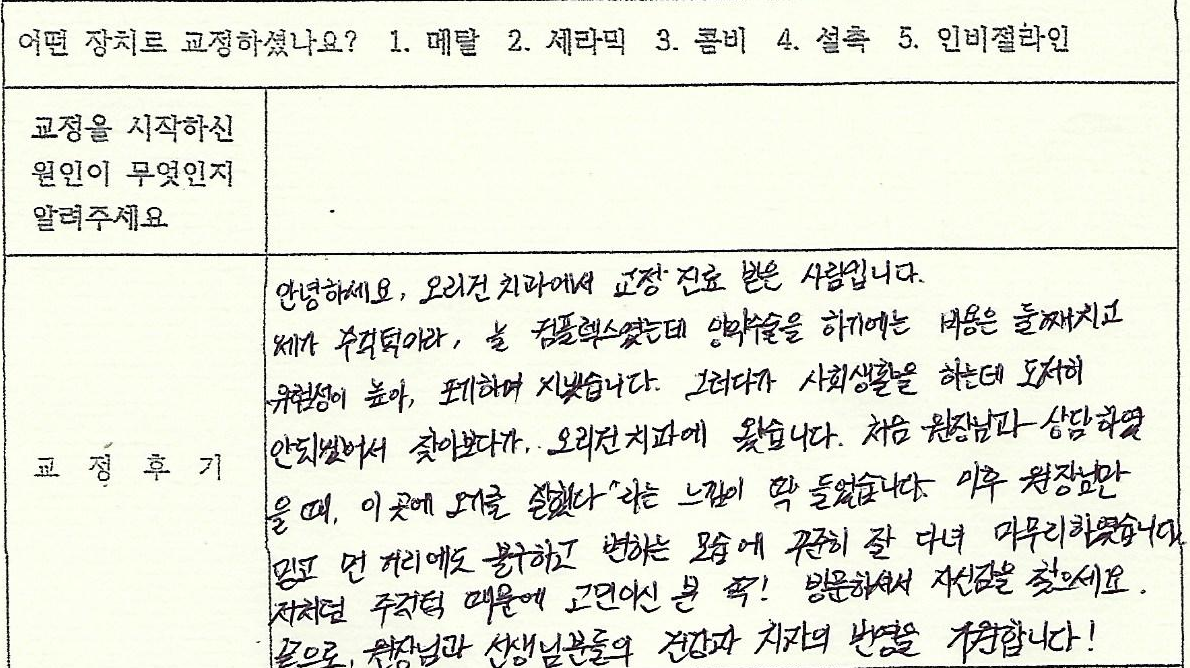 어떤 장치로 교정하셨나요? 1. 메탈 2. 세라믹 3. 콤비 4. 설측 5. 인비절라인
교정을 시작하신
원인이 무엇인지
알려주세요
교 정 후 기
안녕하세요, 오리건 치과에서 교정 진료 받은 사람입니다.
제가 주걱턱이라, 늘 컴플렉스였는데 양악수술을 하기에는 비용은 둘째치고
위험성이 높아, 포기하며 지냈습니다. 그러다가 사회생활을 하는데 도저히
안되겠어서 찾아보다가, 오리건치과에 왔습니다. 처음 원장님과 상담하였
을 때, 이 곳에 오기를 잘했다" 라는 느낌이 딱 들었습니다. 이후 원장님만
믿고 먼 거리에도 불구하고 변하는 모습에 꾸준히 잘 다녀 마무리하였습니다.
저처럼 주걱턱 때문에 고민이신 분 꼭! 방문하셔서 자신감을 찾으세요.
끝으로, 원장님과 선생님분들의 건강과 치과의 번영을 기원합니다!